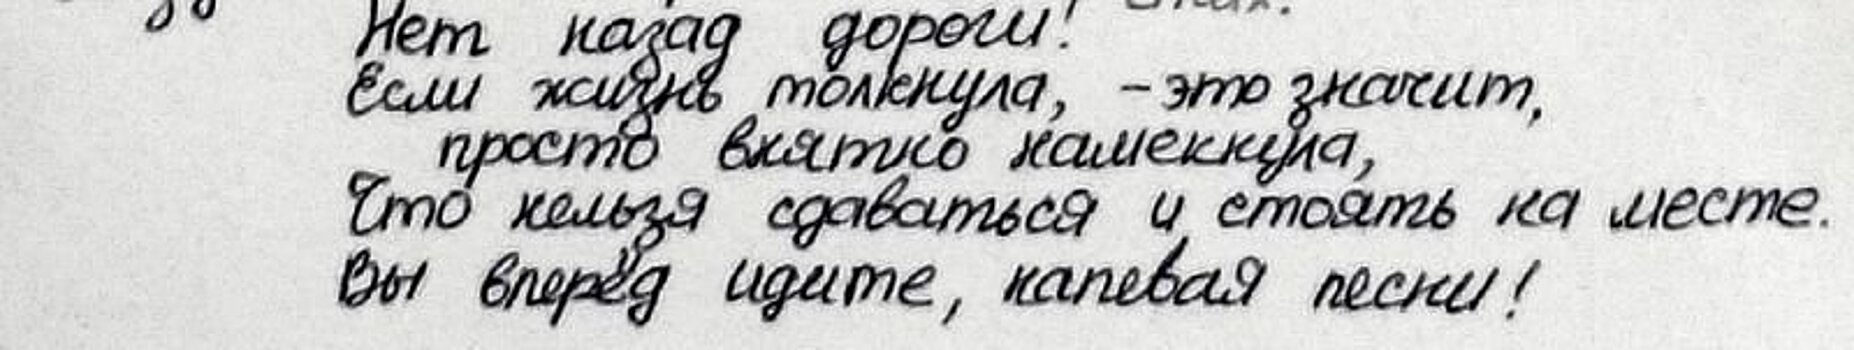 Нет назад дороги!
Если жизнь толкнула, - это значит,
просто внятно намекнула,
Что нельзя сдаваться и стоять на месте.
Вы вперёд идите, напевая песни!